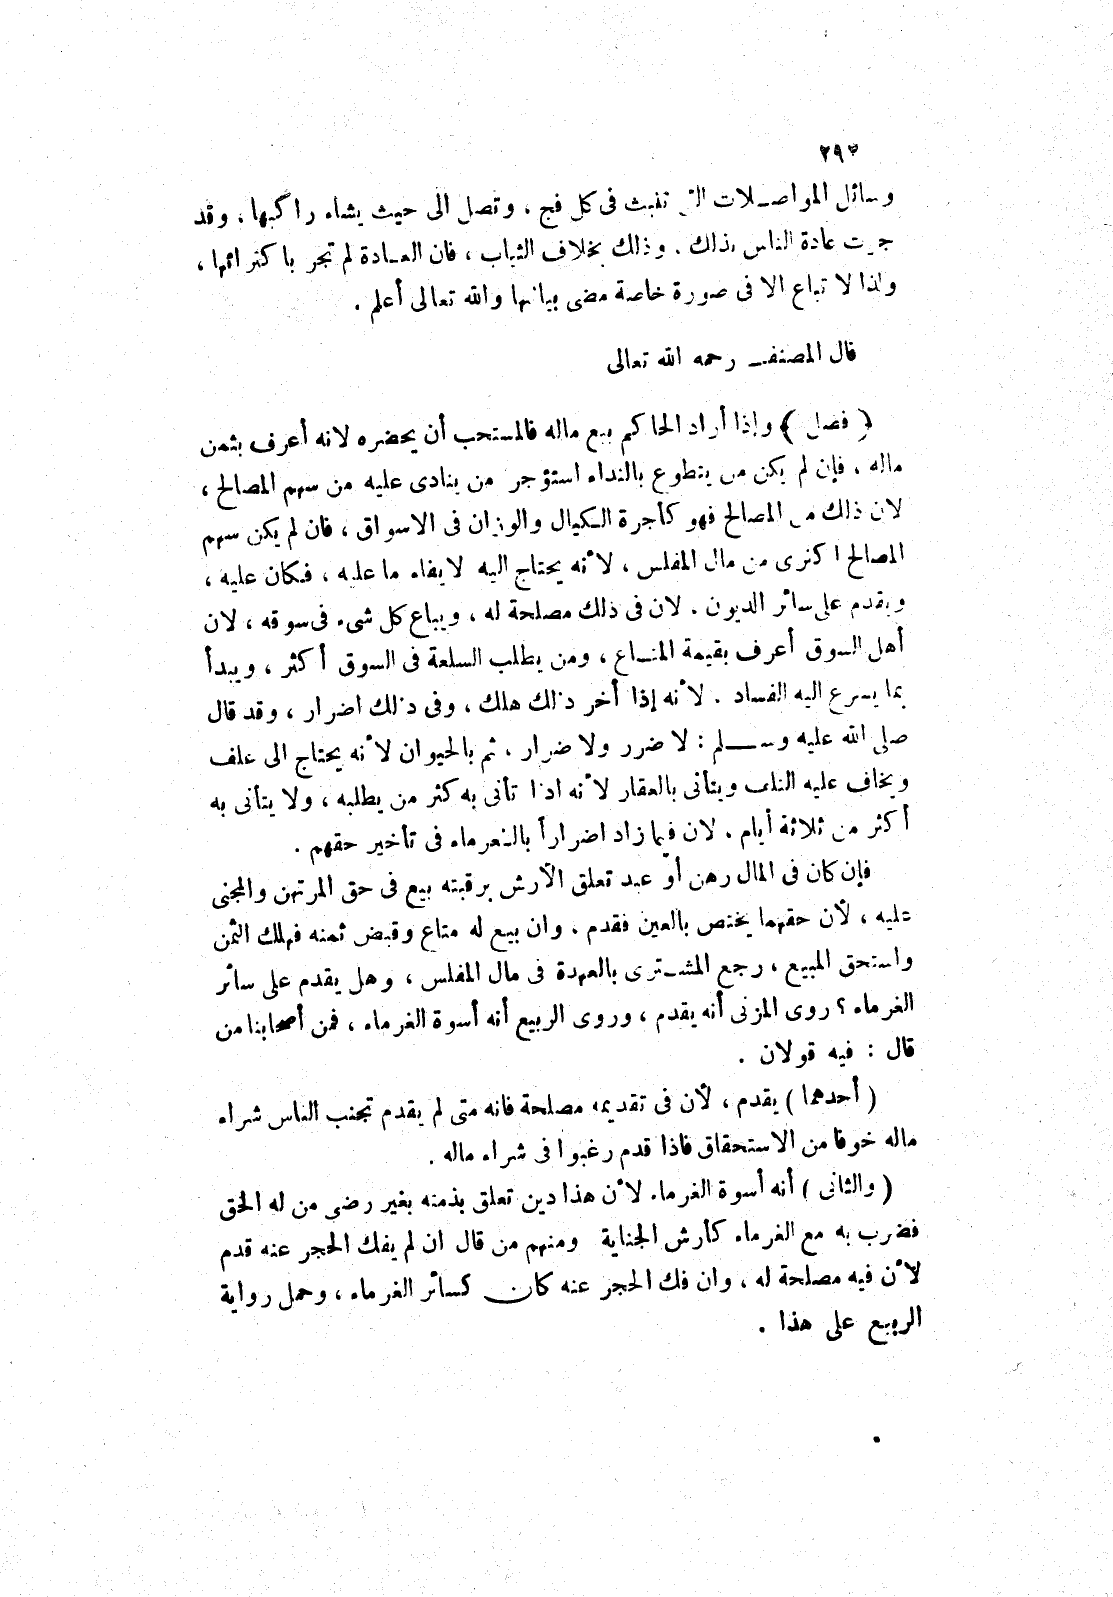 ٢٩٣
وسائل المواصلات التى تنبث فى كل فج ، وتصل الى حيث يشاء راكبها ، وقد
جرت عادة الناس بذلك . وذلك بخلاف الثياب ، فان العادة لم تجر باكترائها ،
ولذا لا تباع الا فى صورة خاصة مضى بيانها والله تعالى أعلم .
قال المصنف رحمه الله تعالى
( فصل ) وإذا أراد الحاكم بيع ماله فالمستحب أن يحضره لانه أعرف بثمن
ماله ، فإن لم يكن من يتطوع بالنداء استؤجر من ينادى عليه من سهم المصالح ،
لان ذلك من المصالح فهو كأجرة الكيال والوزان فى الاسواق ، فان لم يكن سهم
المصالح اكترى من مال المفلس ، لأنه يحتاج اليه لايفاء ما عليه ، فكان عليه ،
ويقدم على سائر الديون . لان فى ذلك مصلحة له ، ويباع كل شىء فى سوقه ، لان
أهل السوق أعرف بقيمة المتاع ، ومن يطلب السلعة فى السوق أكثر ، ويبدأ
بما يسرع اليه الفساد . لأنه إذا أخر ذلك هلك ، وفى ذلك اضرار ، وقد قال
صلى الله عليه وسلم : لا ضرر ولا ضرار ، ثم بالحيوان لأنه يحتاج الى علف
ويخاف عليه التلف ويتأنى بالعقار لأنه اذا تأنى به كثر من يطلبه ، ولا يتأنى به
أكثر من ثلاثة أيام . لان فيما زاد اضراراً بالغرماء فى تأخير حقهم .
فإن كان فى المال رهن أو عبد تعلق الأرش برقبته بيع فى حق المرتهن والمجنى
عليه ، لأن حقهما يختص بالعين فقدم . وان بيع له متاع وقبض ثمنه فهلك الثمن
واستحق المبيع ، رجع المشترى بالعهدة فى مال المفلس ، وهل يقدم على سائر
الغرماء ؟ روى المزنى أنه يقدم ، وروى الربيع أنه أسوة الغرماء ، فمن أصحابنا من
قال : فيه قولان .
( أحدهما ) يقدم ، لأن فى تقديمه مصلحة فانه متى لم يقدم تجنب الناس شراء
ماله خوفا من الاستحقاق فاذا قدم رغبوا فى شراء ماله .
( والثانى ) أنه أسوة الغرماء لأن هذا دين تعلق بذمته بغير رضى من له الحق
فضرب به مع الغرماء كأرش الجناية ومنهم من قال ان لم يفك الحجر عنه قدم
لأن فيه مصلحة له ، وان فك الحجر عنه كان كسائر الغرماء ، وحمل رواية
الربيع على هذا .